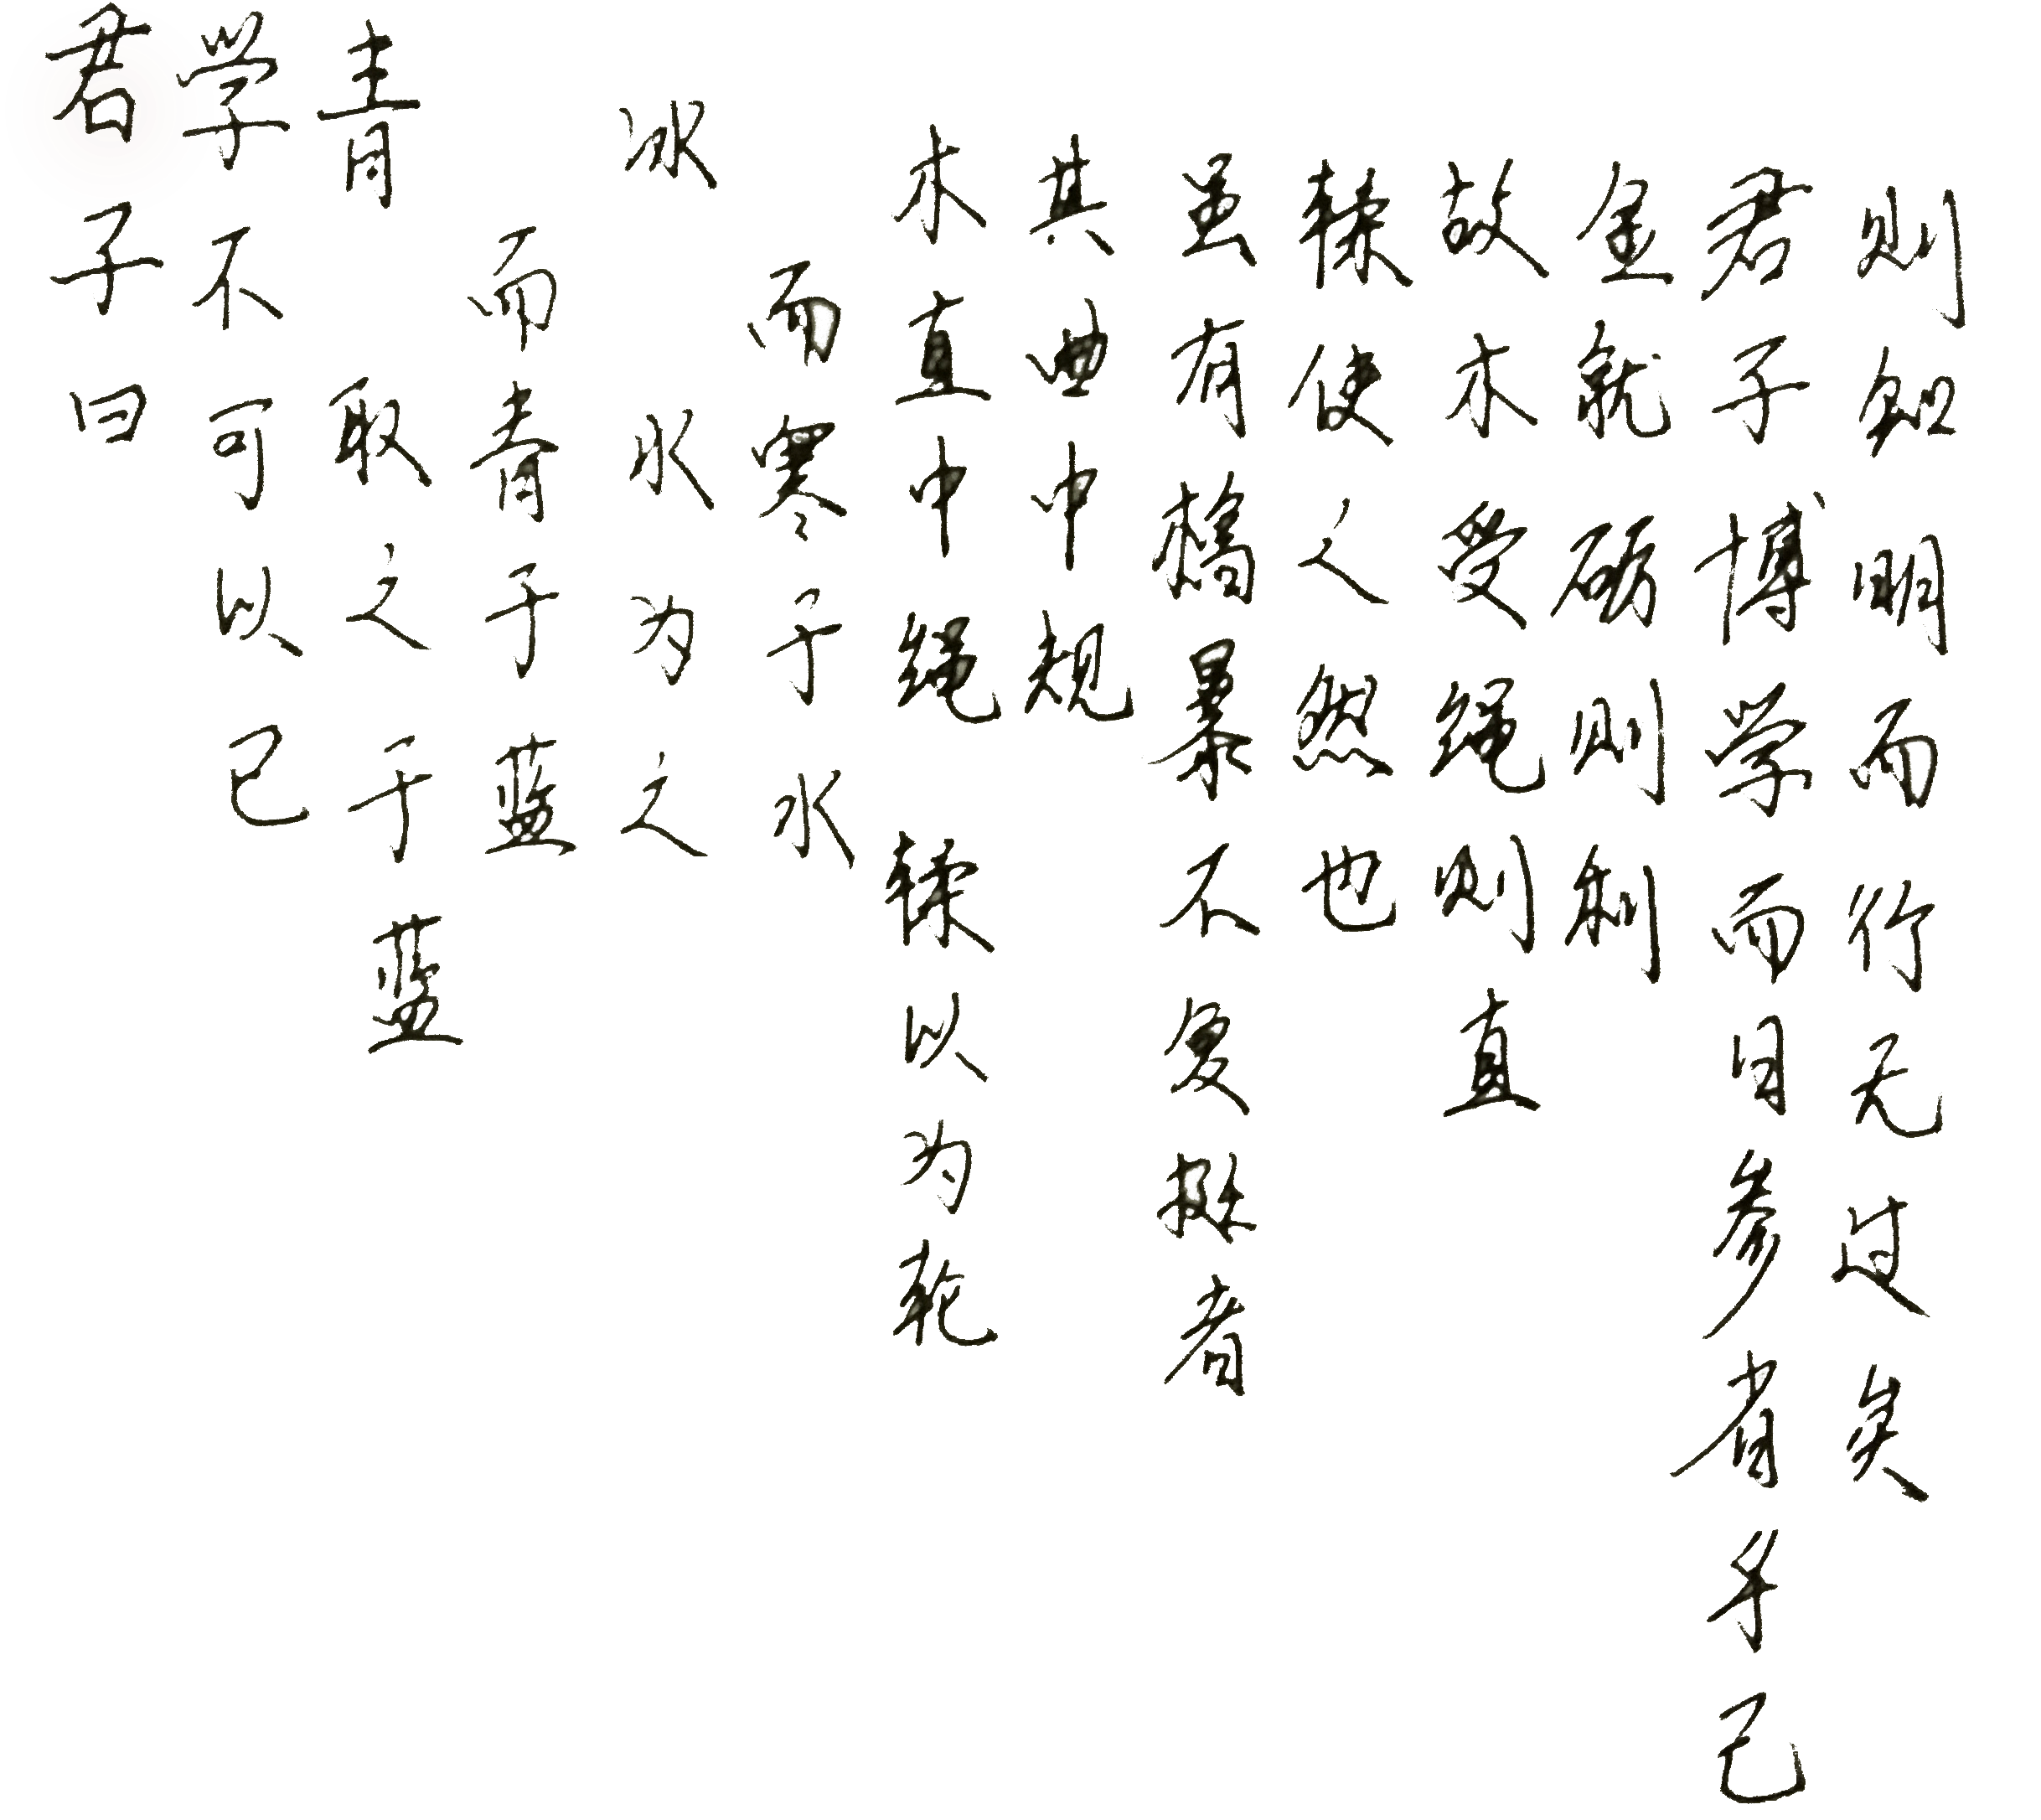 君子曰
学不可以已
青 取之于蓝
而青于蓝
冰 水为之
而寒于水
木直中绳 𫐓以为轮
其曲中规
虽有槁暴不复挺者
𫐓使之然也
故木受绳则直
金就砺则利
君子博学而日参省乎己
则知明而行无过矣